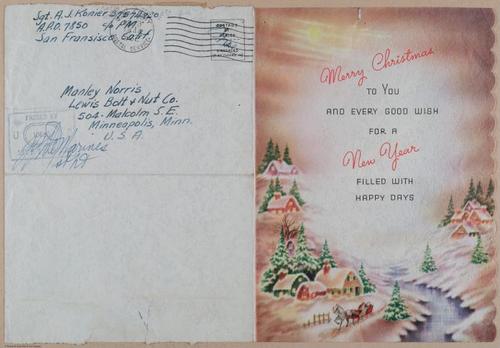 Sgt. A.J. Konier
A.P.O. 7850 % P.M.
San Francisco, Calif.
Manley Norris
Lewis Bolt & Nut Co.
504 - Malcolm S.E.
Minneapolis, Minn.
U.S.A.
PASSED BY
Merry Christmas
TO YOU
AND EVERY GOOD WISH
FOR A
New Year
FILLED WITH
HAPPY DAYS